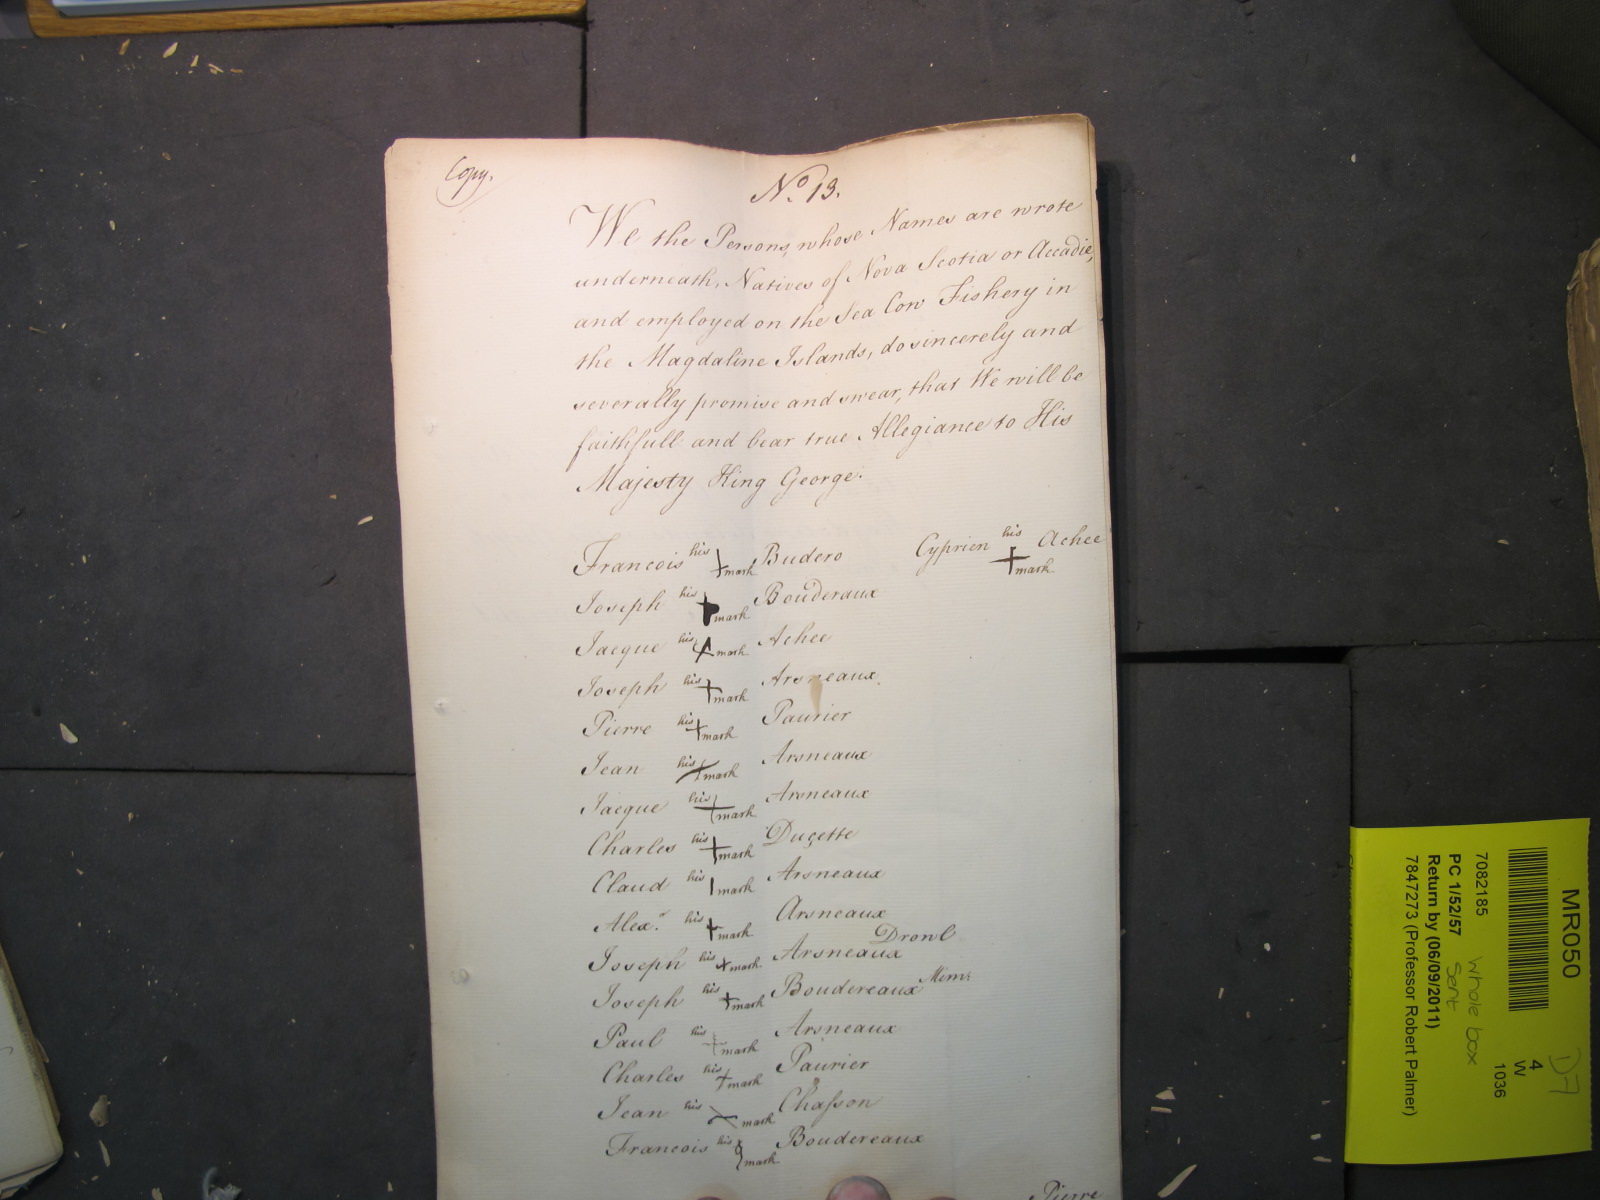 Copy.
No. 13.
We the Persons, whose Names are wrote
underneath, Natives of Nova Scotia or Accadie,
and employed on the Sea Cow Fishery in
the Magdaline Islands, do sincerely and
severally promise and swear, that We will be
faithfull and bear true Allegiance to His
Majesty King George.
Francois his mark Budero
Cyprien his mark Achee
Joseph his mark Bouderaux
Jacque his mark Achee
Joseph his mark Arsneaux
Pierre his mark Paurier
Jean his mark Arsneaux
Jacque his mark Arsneaux
Charles his mark Duçette
Claud his mark Arsneaux
Alexr. his mark Arsneaux
Joseph his mark Arsneaux
Joseph his mark Boudereaux
Paul his mark Arsneaux
Charles his mark Paurier
Jean his mark Chaſson
Francois his mark Boudereaux
Pierre
MR050
4
W
1036
7082185
PC 1/52/57
Return by (06/09/2011)
7847273 (Professor Robert Palmer)
Whole box
Sent
D7